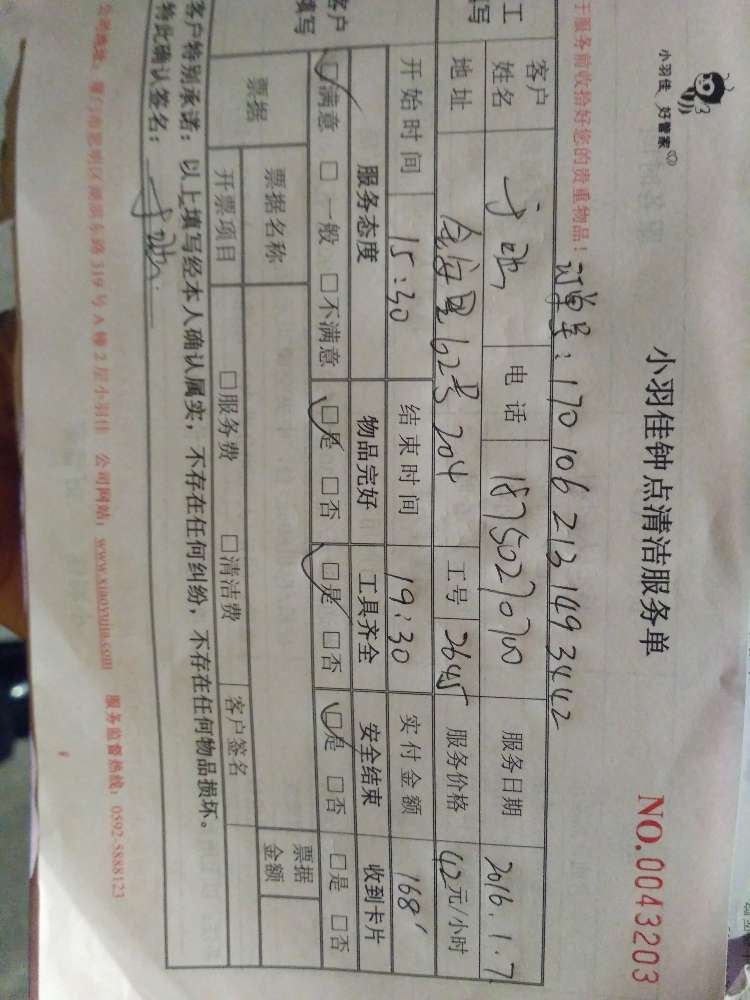 小羽佳 好管家
小羽佳钟点清洁服务单
NO.0043203
于服务前收拾好您的贵重物品!
订单号:170106213149 3442
客户姓名 电话 18750270700 服务日期 2016.1.7
地址 62号204 工号 2645 服务价格 42元/小时
开始时间 15:30 结束时间 19:30 实付金额 168
服务态度 物品完好 工具齐全 安全结束 收到卡片
□满意 □一般 □不满意 □是 □否 □是 □否 □是 □否 □是 □否
票据 票据名称 票据金额
开票项目 □服务费 □清洁费 客户签名
客户特别承诺:以上填写经本人确认属实,不存在任何纠纷,不存在任何物品损坏。
特此确认签名:
319号A幢2层小羽佳 公司网站:www.xiaoyujia.com 服务监督热线:0592-5888123